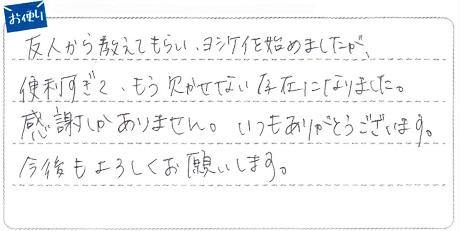 お便り
友人から教えてもらい、ヨシケイを始めましたが、
便利すぎて、もう欠かせない存在になりました。
感謝しかありません。いつもありがとうございます。
今後もよろしくお願いします。